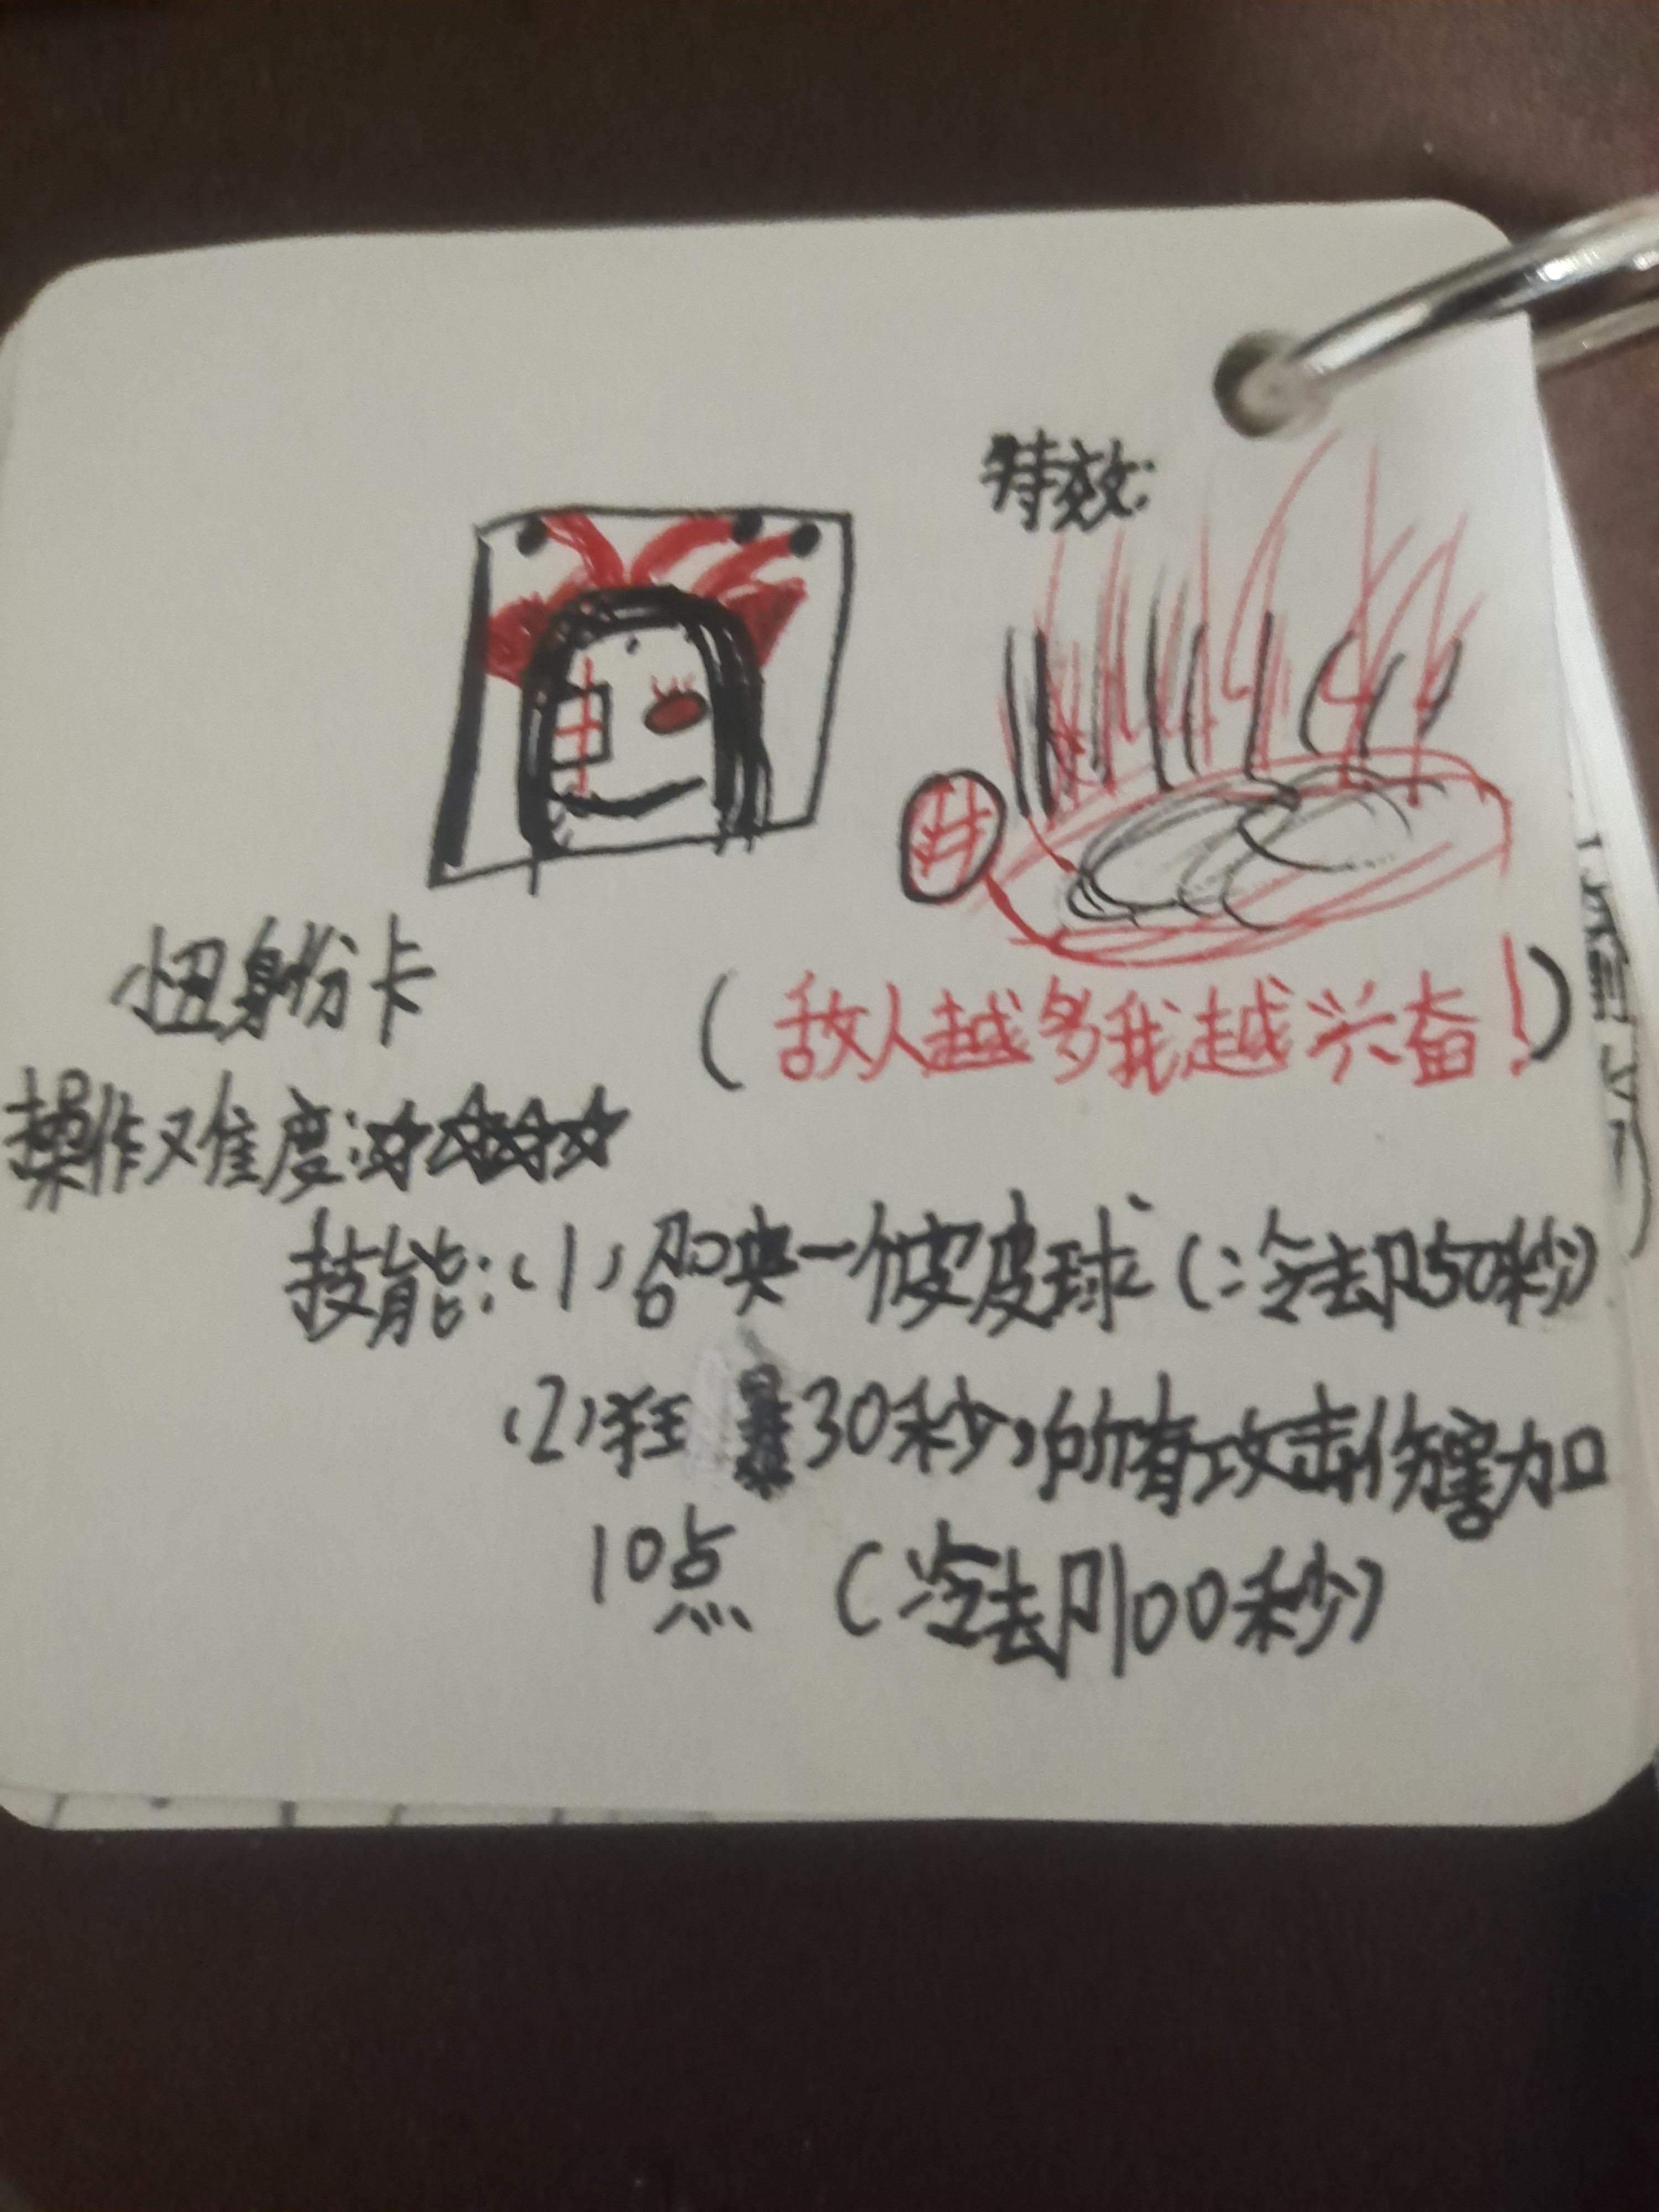 特效:
小丑身份卡
(敌人越多我越兴奋!)
操作难度:☆☆☆☆
技能:(1)召唤一个皮皮球(:冷却50秒)
(2)狂暴30秒,所有攻击伤害加
10点 (冷却100秒)